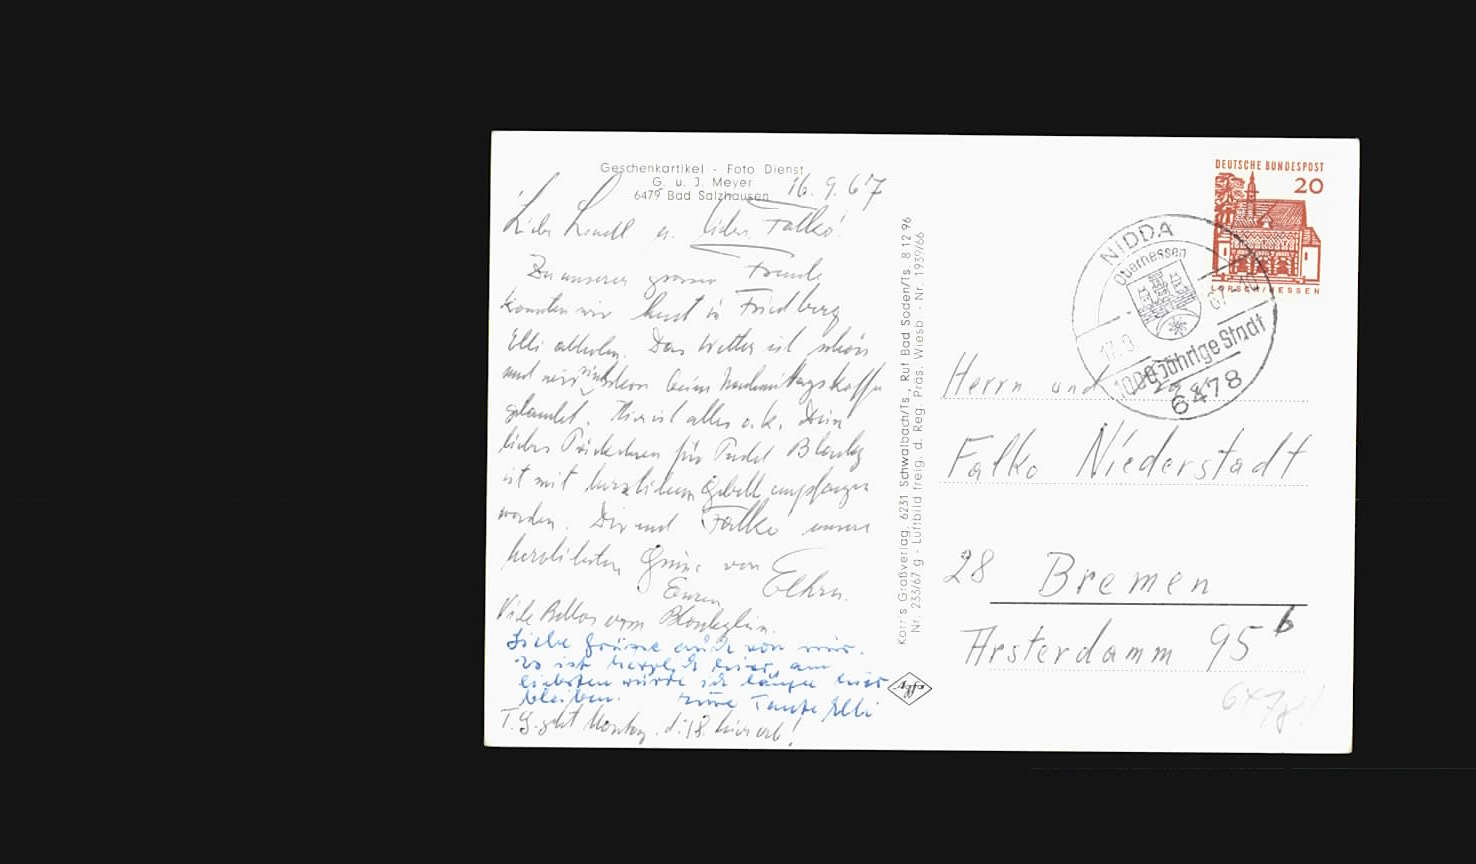 Geschenkartikel - Foto Dienst
G. u. J. Meyer
6479 Bad Salzhausen
16. 9. 67
u. lieber Falko!
Zu unserer grossen Freude
konnten wir heut in Friedberg
Elli abholen. Das Wetter ist schön
und wir sind schon beim Nachmittagskaffee
gelandet. Hier ist alles o.k. Dein
liebes Päckchen für Pudel Blacky
ist mit herzlichem Gebell empfangen
worden. Dir und Falko unsere
herzlichsten Grüsse von
Euren Eltern.
Viele vom
Liebe Grüsse auch von mir.
Es ist herrlich hier, am
liebsten würde ich länger hier
bleiben. Eure Tante Elli
T. E. geht Montag d. 18. hier ab!
Korr's Großverlag, 6231 Schwalbach/Ts., Ruf Bad Soden/Ts. 8 12 96
Nr. 233/67 g - Luftbild freig. d. Reg. Präs. Wiesb. - Nr. 1939/66
Agfa
DEUTSCHE BUNDESPOST
20
LORSCH/HESSEN
NIDDA
Oberhessen
17.9. 67
1000 jährige Stadt
6478
Herrn und Frau
Falko Niederstadt
28 Bremen
Arsterdamm 95 b
6478